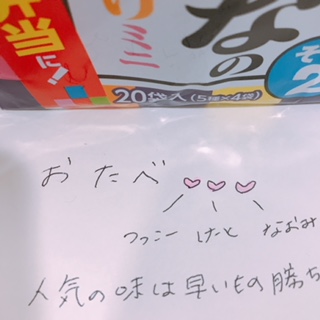 弁当に!
のミニ
なの
そ
2
20袋入(5種×4袋)
おたべ♡♡♡
つっこー けーと なおみ
人気の味は早いもの勝ち